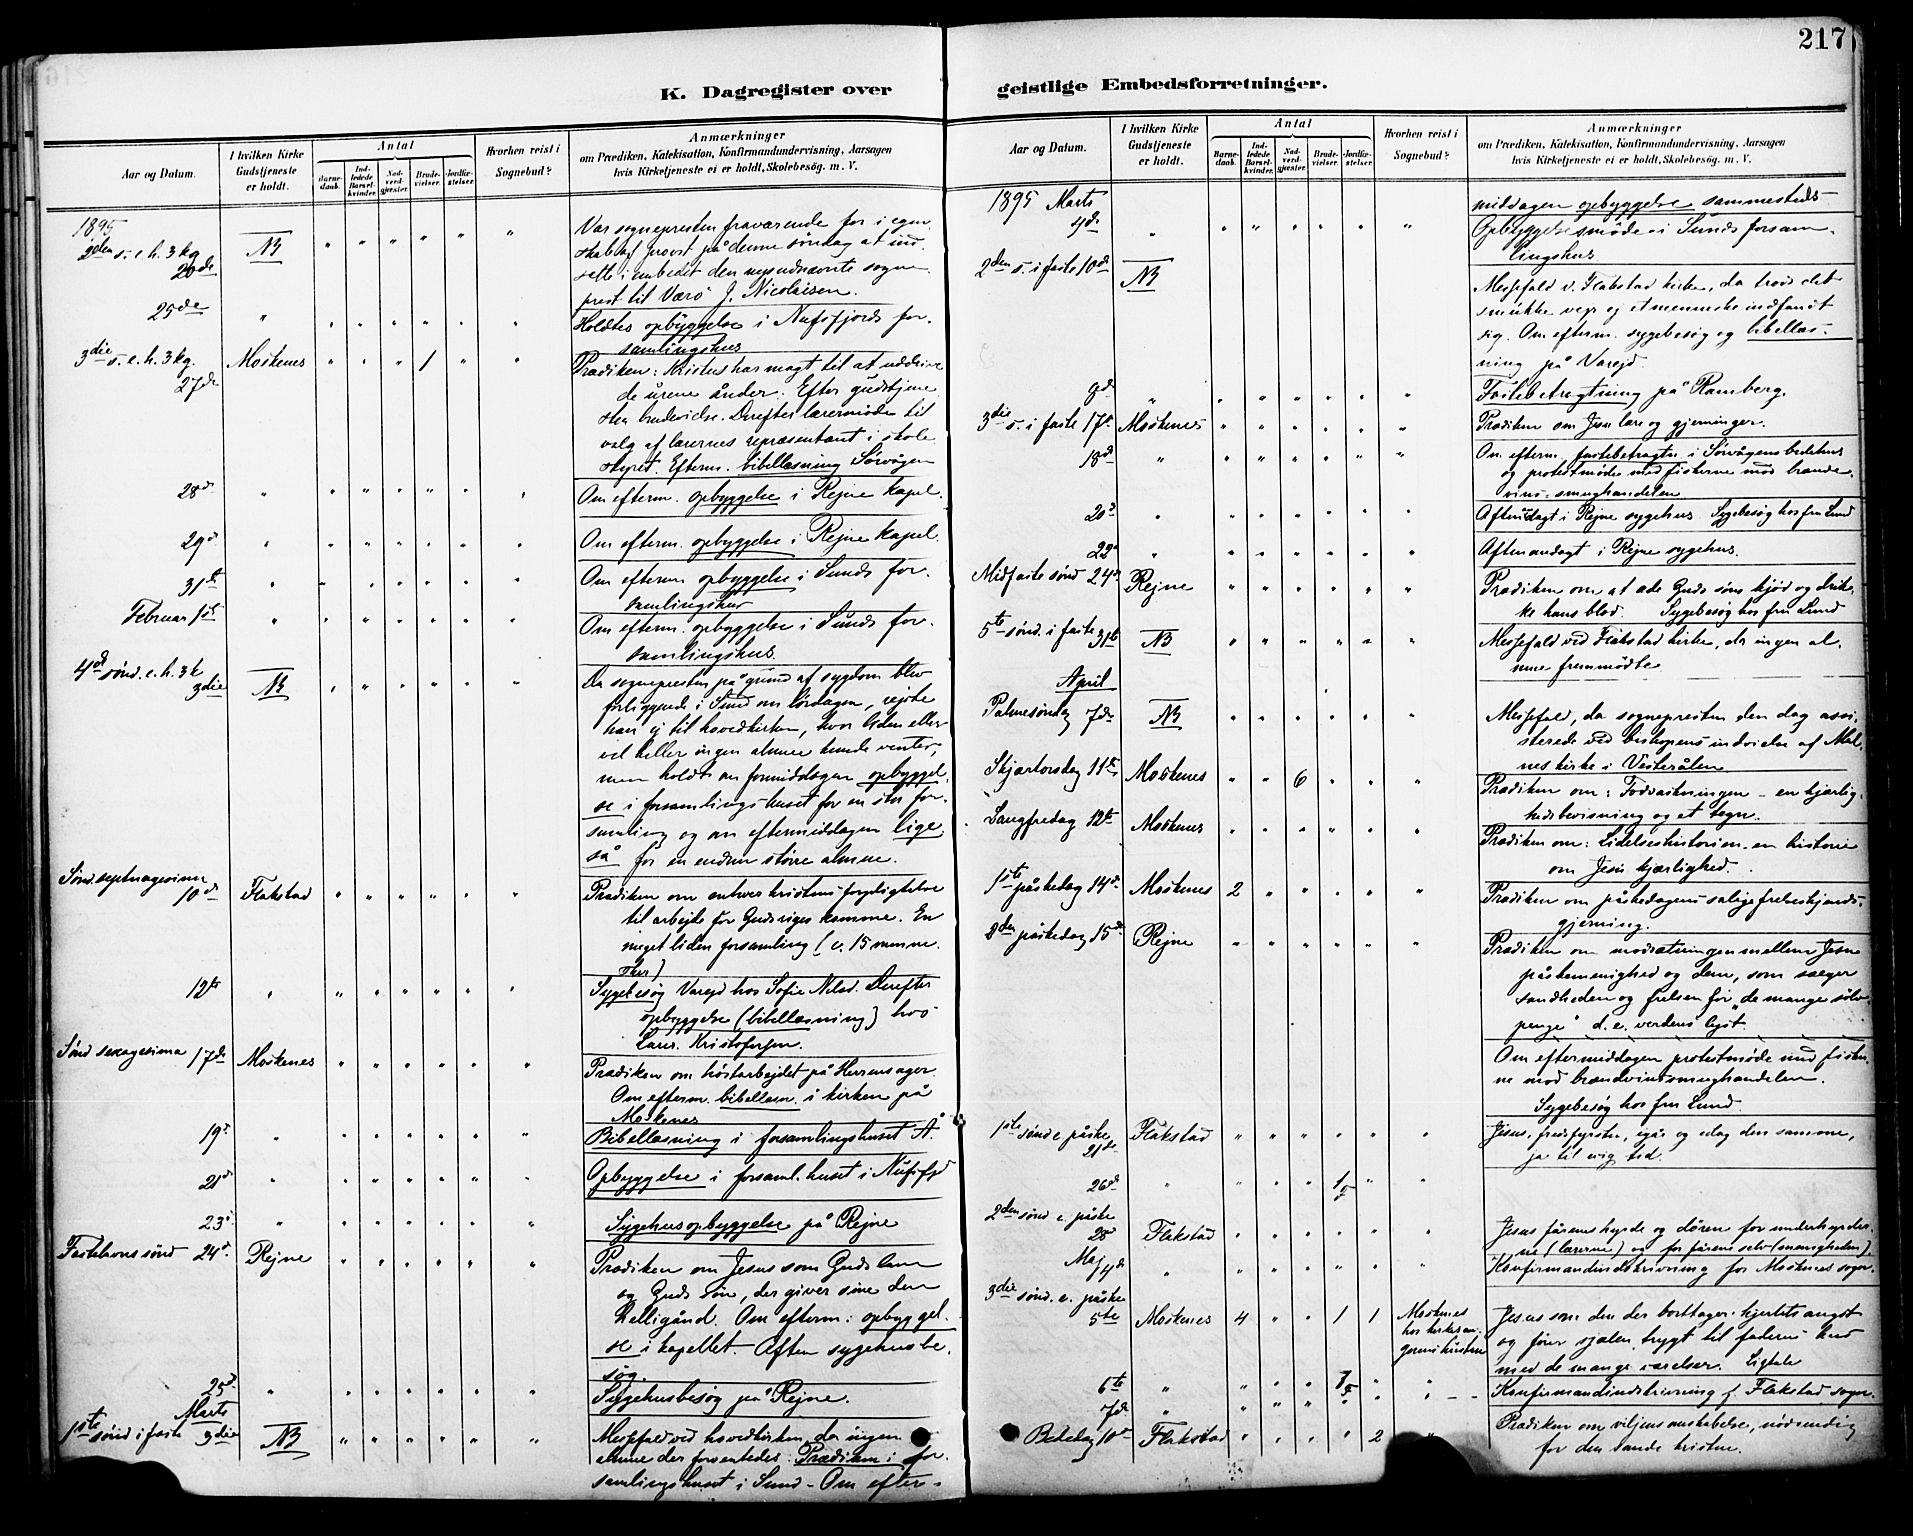 217
K. Dagregister over geistlige Embedsforretninger.
Aar og Datum.
I hvilken Kirke Gudstjeneste er holdt.
Antal
Barnedaab.
Indledede Barselkvinder.
Nadverdgjæster.
Brudevielser.
Jordfæstelser.
Hvorhen reist i Sognebud?
Anmærkninger
om Prædiken, Katekisation, Konfirmandundervisning, Aarsagen
hvis Kirketjeneste ei er holdt, Skolebesøg. m. V.
1895
2den s. e. h. 3 kg. 20de
NB
Var sognepresten fraværende for i egen-
skab af provst på denne søndag at ind-
sette i embedet den nyudnævnte sogne-
prest til Værø J. Nicolaisen.
25de
Holdtes opbyggelse i Nufsfjords for-
samlingshus
3die s. e. h. 3 kg. 27de
Moskenes
1
Prædiken: Kristus har magt til at uddrive
de urene ånder. Efter gudstjene-
sten brudevielse. Derefter lærermøde til
valg af lærernes repræsentant i skole-
styret. Efterm. bibellæsning Sørvågen
28de
Om efterm. opbyggelse i Rejne kapel.
29de
Om efterm. opbyggelse i Rejne kapel.
31te
Om efterm. opbyggelse i Sunds for-
samlingshus
Februar 1ste
Om efterm. opbyggelse i Sunds for-
samlingshus
4de sønd. e. h. 3 k. 3die
NB
Da sognepresten på grund af sygdom blev
forliggende i Sund om lørdagen, rejste
han ej til hovedkirken, hvor liden eller
vel heller ingen almue kunde ventes,
men holdt om formiddagen opbyggel-
se i forsamlingshuset for en stor for-
samling og om eftermiddagen lige-
så for en endnu større almue.
Sønd. septuagesima 10de
Flakstad
Prædiken om enhver kristens forpligtelse
til arbejde for Gudsriges komme. En
meget liden forsamling (c. 15 menne-
sker)
12te
Sygebesøg Varejd hos Sofie Nilsd. Derefter
opbyggelse (bibellæsning) hos
Lærer Kristofersen.
Sønd sexagesima 17de
Moskenes
Prædiken om høstarbejdet på Herrens ager.
Om efterm. bibellæsn. i kirken på
Moskenes
19de
Bibellæsning i forsamlingshuset Å.
21de
Opbyggelse i forsaml.huset i Nufsfjd
23de
Sygehusopbyggelse på Rejne
Fastelavns sønd 24de
Rejne
Prædiken om Jesus som Guds lam
og Guds søn, der giver sine den
Helligånd. Om efterm: opbyggel-
se i kapellet. Aften sygehusbe-
søg.
25de
Sygehusbesøg på Rejne.
Marts
1ste sønd i faste 3die
NB
Messefald ved hovedkirken, da ingen
almue der forventedes. Prædiken i for-
samlingshuset i Sund - Om efter-
1895 Marts
middagen opbyggelse sammesteds
9de
Opbyggelsesmøde i Sunds forsam-
lingshus
2den s. i faste 10de
NB
Messefald v. Flakstad kirke, da trods det
smukke vejr og et menneske indfandt
sig. Om efterm. sygebesøg og bibellæs-
ning på Varejd.
Fastebetragtning på Ramberg.
3die s. i faste 17de
Moskenes
Prædiken om Jesu lære og gjerninger.
18de
Om efterm. fastebetragtn. i Sørvågens bedehus
og protestmøde med fiskerne mod brænde-
vins-smughandelen
20de
Aftenandagt i Rejne sygehus Sygebesøg hos fru Lund
22de
Aftenandagt i Rejne sygehus.
Midfaste sønd 24de
Rejne
Prædiken om at æde Guds søns kjød og drik-
ke hans blod. Sygebesøg hos fru Lund
5te sønd. i faste 31te
NB
Messefald ved Flakstad kirke, da ingen al-
mue fremmødte
April
Palmesøndag 7de
NB
Messefald, da sognepresten den dag assi-
sterede ved biskopens indvielse af Mel-
nes kirke i Vesterålen
Skjærtorsdag 11te
Moskenes
6
Prædiken om: Fodvaskningen - en kjærlig-
hedsbevisning og et tegn.
Langfredag 12te
Moskenes
Prædiken om: Lidelseshistorien en historie
om Jesu kjærlighed.
1ste påskedag 14de
Moskenes
2
Prædiken om påskedagens salige frelseskjends-
gjerning.
2den påskedag 15de
Rejne
Prædiken om modsætningen mellem Jesu
påskemenighed og dem, som sælger
sandheden og frelsen for "de mange sølv-
penge" d.e. verdens lyst.
Om eftermiddagen protestmøde med fisker-
ne mod brændvinssmughandelen.
Sygebesøg hos fru Lund.
1ste sønd e. påske 21de
Flakstad
Jesus, fredsfyrsten, igår og idag den samme,
ja til evig tid.
26de
1
2den sønd e. påske 28
Flakstad
Jesus fårenes hyrde og døren for underhyrder-
ne (lærerne) og for fårene selv (menigheden)
Maj 4de
Konfirmandindskrivning for Moskenes sogn.
3die sønd. e. påske 5te
Moskenes
4
1
1
Moskenes
hos kirkesan-
gerens hustru
Jesus som den der borttager hjertets angst
og fører sjælen trygt til faderens hus
med de mange værelser. Ligtale
6te
Konfirmandindskrivning f. Flakstad sogn.
7de
Bededag 10de
Flakstad
2
Prædiken om viljens omskabelse, nødvendig
for den sande kristen.